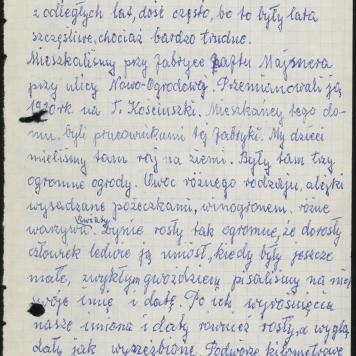 z odległych lat, dość często, bo to były lata
szczęśliwe, chociaż bardzo trudne.
Mieszkaliśmy przy fabryce
przy ulicy Nowo-Ogrodowej. Przemianowali ją
na T. Kościuszki. Mieszkańcy tego do-
mu, byli pracownikami tej fabryki. My dzieci
mieliśmy tam raj na ziemi. Były tam trzy
ogromne ogrody. Owoc różnego rodzaju, alejki
wysadzane pożeczkami, winogronem, różne
warzywa, kwiaty. Dynie rosły tak ogromne, że dorosły
człowiek ledwie ją uniósł, kiedy były jeszcze
małe, zwykłym gwoździem pisaliśmy na niej
swoje imię i datę. Po ich wyrośnięciu
nasze imiona i daty również rosły, a wyglą
dały jak wyrzeźbione. Podwórze kilometrowe